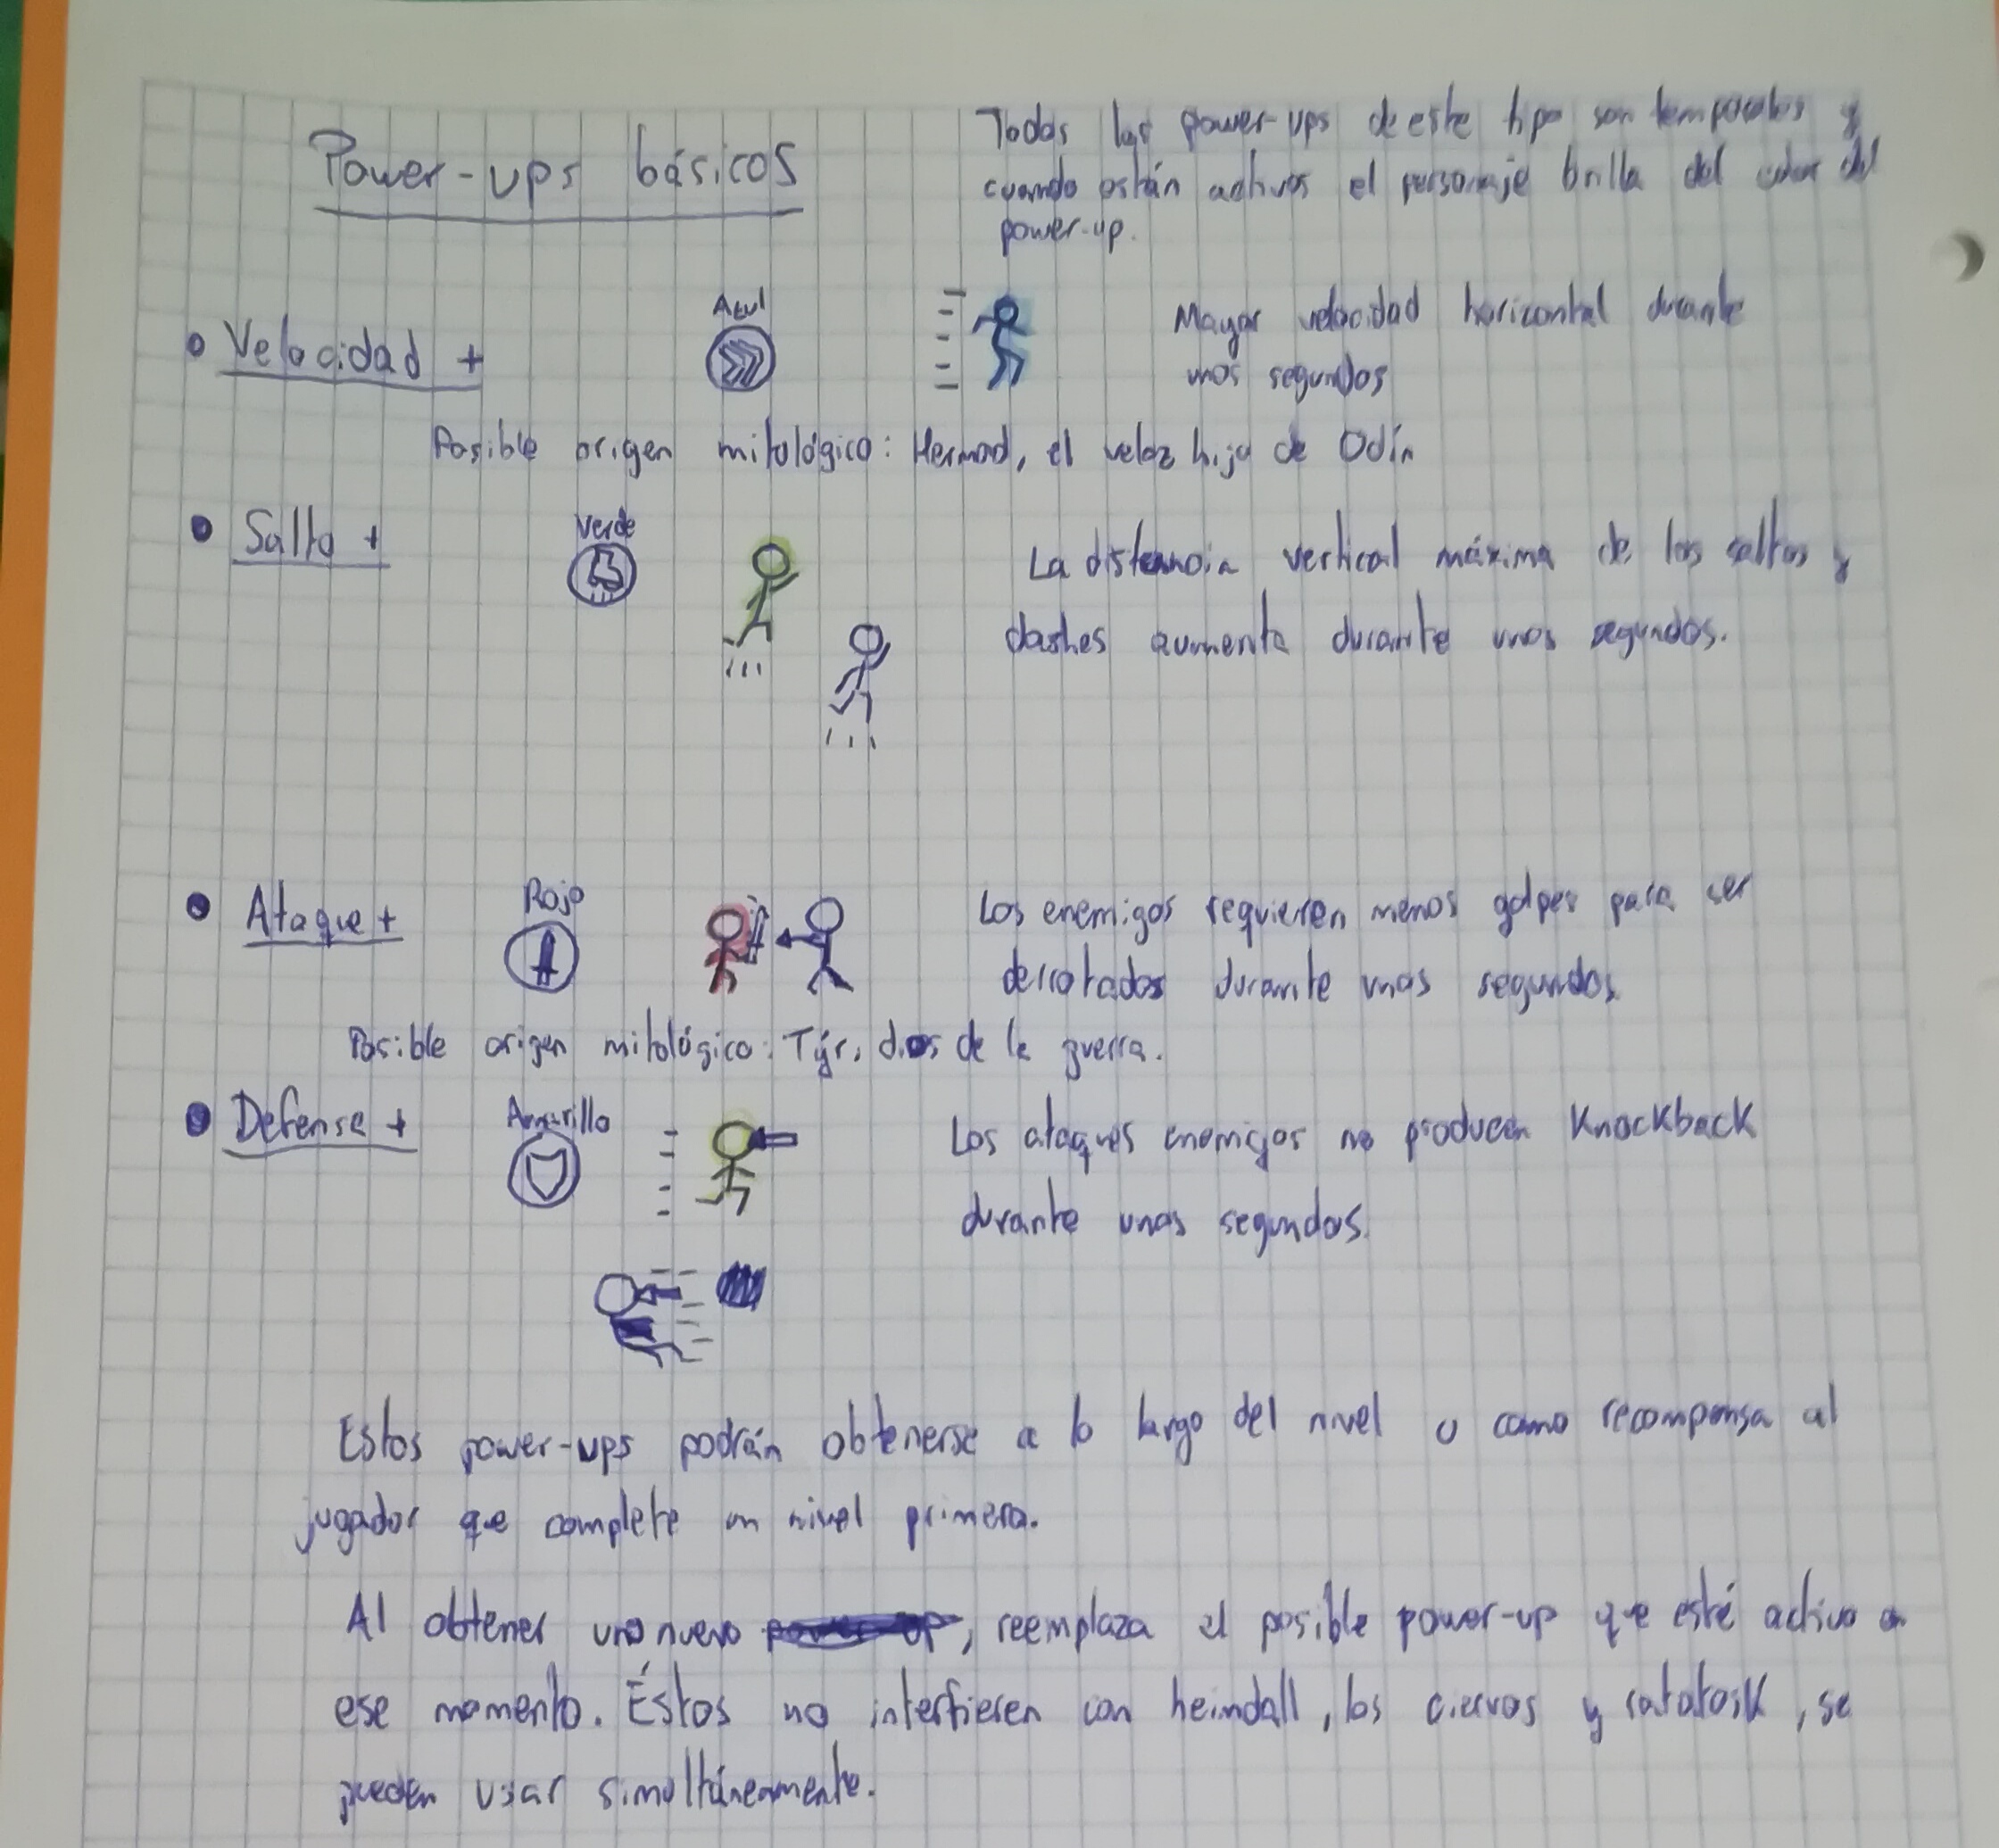 Power-ups básicos
Todos los power-ups de este tipo son temporales y
cuando están activos el personaje brilla del color del
power-up.
Velocidad +
Azul
Mayor velocidad horizontal durante
unos segundos
Posible origen mitológico: Hermod, el veloz hijo de Odín
Salto +
Verde
La distancia vertical máxima de los saltos y
dashes aumenta durante unos segundos.
Ataque +
Rojo
Los enemigos requieren menos golpes para ser
derrotados durante unos segundos
Posible origen mitológico: Týr, dios de la guerra.
Defensa +
Amarillo
Los ataques enemigos no producen Knockback
durante unos segundos.
Estos power-ups podrán obtenerse a lo largo del nivel o como recompensa al
jugador que complete un nivel primero.
Al obtener uno nuevo power-up, reemplaza el posible power-up que esté activo en
ese momento. Éstos no interfieren con heimdall, los ciervos y ratatosk, se
pueden usar simultáneamente.